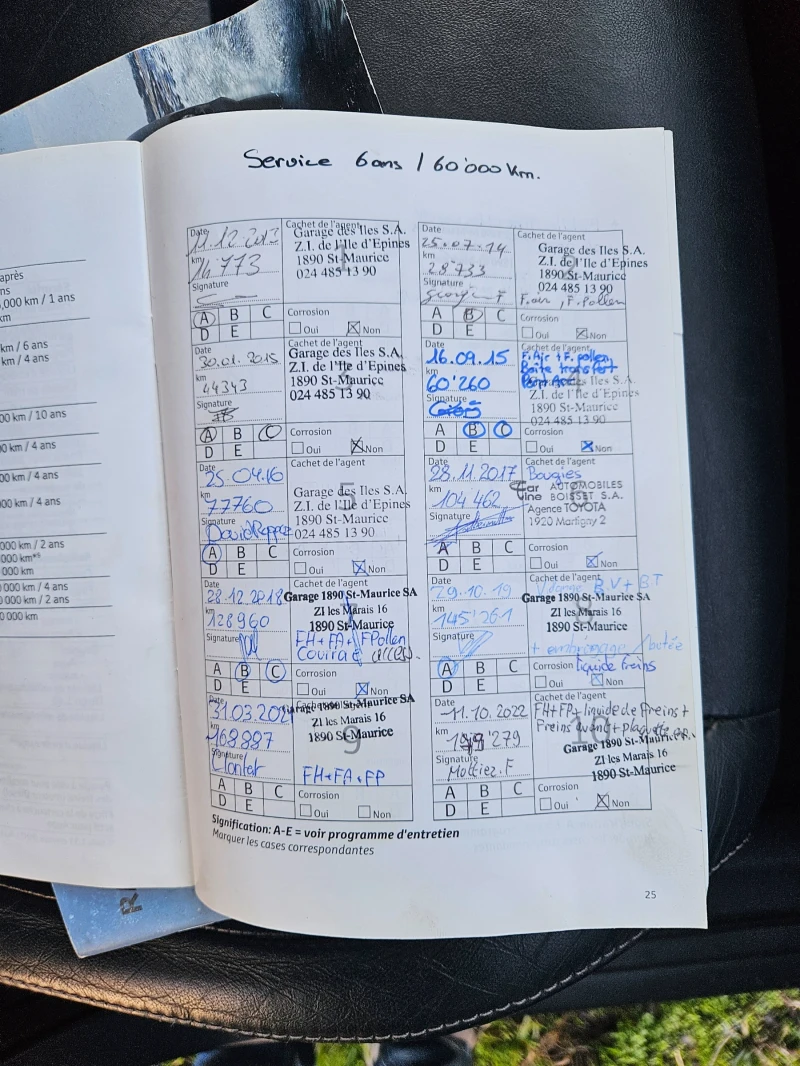 Service 6ans / 60'000 Km.
après
ns
,000 km / 1 ans
km
km / 6 ans
km / 4 ans
00 km / 10 ans
00 km / 4 ans
000 km / 4 ans
000 km / 4 ans
000 km / 2 ans
000 km*⁵
000 km
000 km / 4 ans
000 km / 2 ans
0 000 km
Date 11.12.2012
km 14'773
Signature
Cachet de l'agent 1
Garage des Iles S.A.
Z.I. de l'Ile d'Epines
1890 St-Maurice
024 485 13 90
A B C
D E
Corrosion
Oui Non
Date 25.07.14
km 28'733
Signature
Cachet de l'agent
Garage des Iles S.A.
Z.I. de l'Ile d'Epines
1890 St-Maurice
024 485 13 90
F.air, F.Pollen
A B C
D E
Corrosion
Oui Non
Date 30.01.2015
km 44343
Signature
Garage des Iles S.A.
Z.I. de l'Ile d'Epines
1890 St-Maurice
024 485 13 90
A B C
D E
Corrosion
Oui Non
Date 16.09.15
km 60'260
Signature
F.Air + F.pollen
Boîte transfert
Iles S.A.
Z.I. de l'Ile d'Epines
1890 St-Maurice
024 485 13 90
A B C
D E
Corrosion
Oui Non
Date 25.04.16
km 77760
Signature
David
Cachet de l'agent 5
Garage des Iles S.A.
Z.I. de l'Ile d'Epines
1890 St-Maurice
024 485 13 90
A B C
D E
Corrosion
Oui Non
Date 28.11.2017
km 104'462
Signature
Cachet de l'agent
Bougies
Car AUTOMOBILES
Vine BOISSET S.A.
Agence TOYOTA
1920 Martigny 2
A B C
D E
Corrosion
Oui Non
Date 28.12.2018
km 128960
Signature
Cachet de l'agent 7
Garage 1890 St-Maurice SA
ZI les Marais 16
1890 St-Maurice
FH+FA+FPollen
access.
A B C
D E
Corrosion
Oui Non
Date 29.10.19
km 145'261
Signature
Cachet de l'agent
Vidange B.V + BT
Garage 1890 St-Maurice SA
ZI les Marais 16
1890 St-Maurice
+ embrayage / butée
liquide freins
A B C
D E
Corrosion
Oui Non
Date 31.03.2021
km 168887
Signature
Garage 1890 St-Maurice SA
ZI les Marais 16
1890 St-Maurice
9
FH+FA+FP
A B C
D E
Corrosion
Oui Non
Date 11.10.2022
km 279
Signature
Mottiez.F
Cachet de l'agent 10
FH+FP+liquide de Freins +
Freins avant + plaquette AR.
Garage 1890 St-Maurice SA
ZI les Marais 16
1890 St-Maurice
A B C
D E
Corrosion
Oui Non
Signification: A-E = voir programme d'entretien
Marquer les cases correspondantes
25